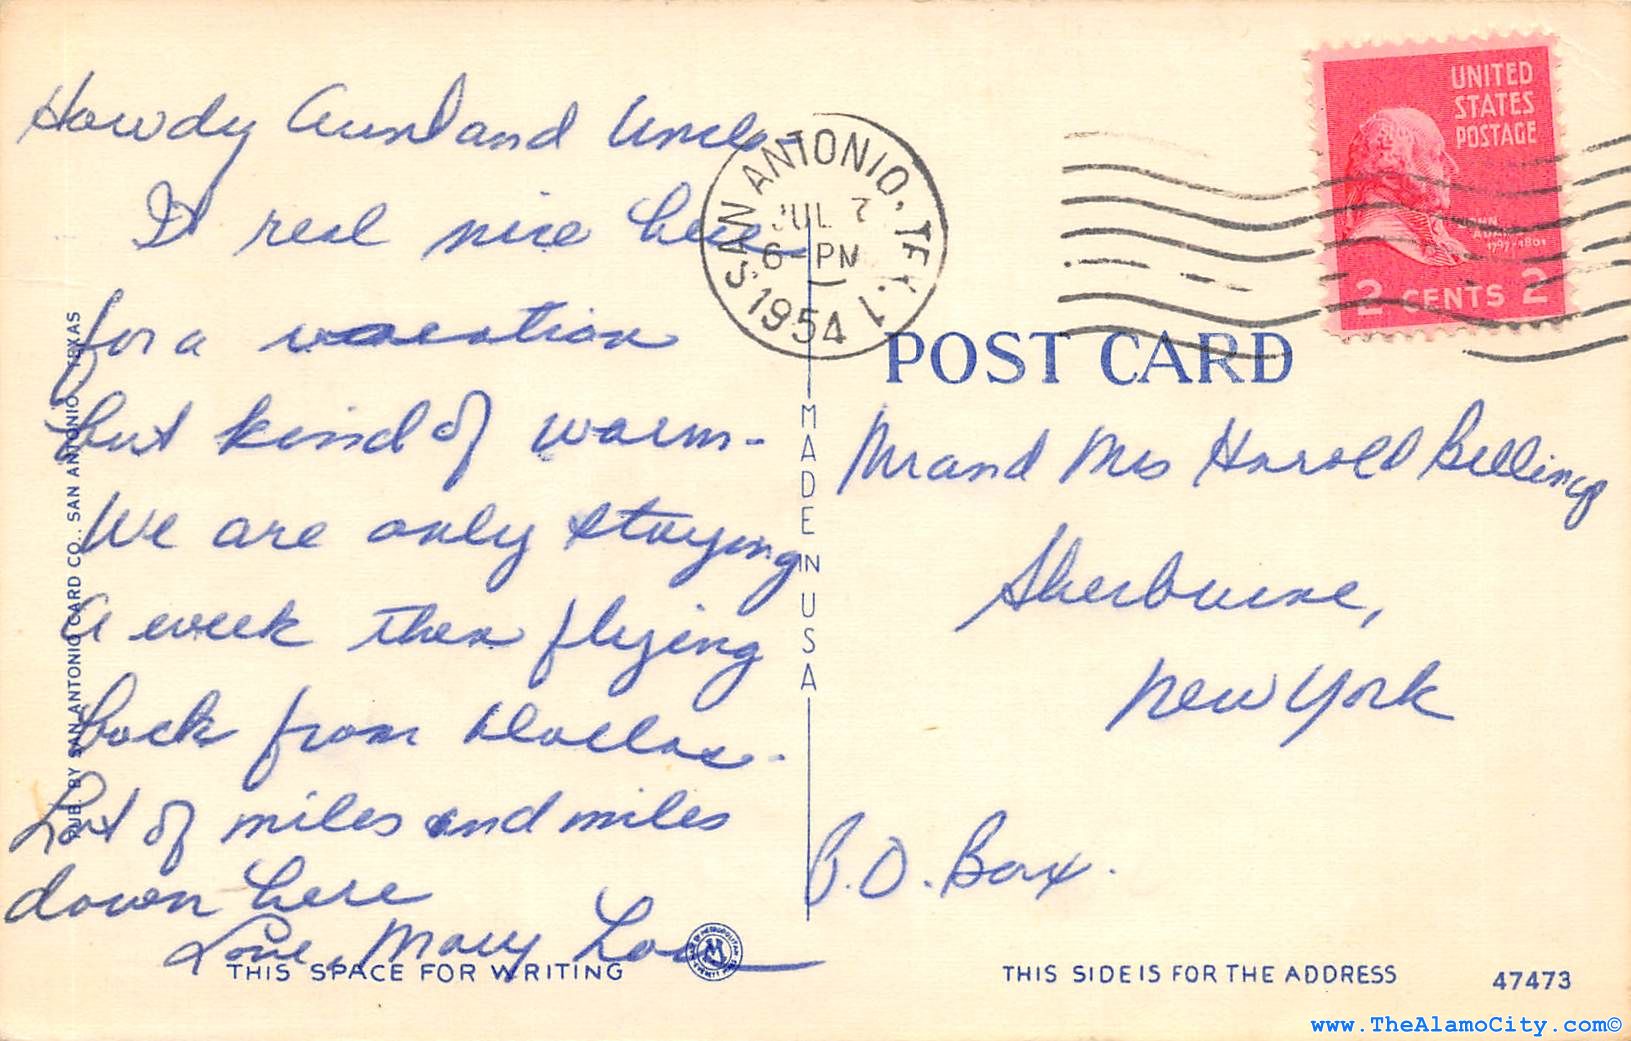 Howdy Aunt and Uncle -
It real nice here
for a vacation
but kind of warm -
We are only staying
a week then flying
back from Dallas -
Lot of miles and miles
down here
Love, Mary Lou
THIS SPACE FOR WRITING
PUB. BY SAN ANTONIO CARD CO., SAN ANTONIO, TEXAS
SAN ANTONIO, TEX. 1
JUL 7
6 - PM
1954
MADE IN USA
UNITED
STATES
POSTAGE
JOHN
ADAMS
1797-1801
2 CENTS 2
POST CARD
Mr and Mrs Harold Billings
Sherburne,
New York
P.O. Box.
THIS SIDE IS FOR THE ADDRESS
47473
www.TheAlamoCity.com©